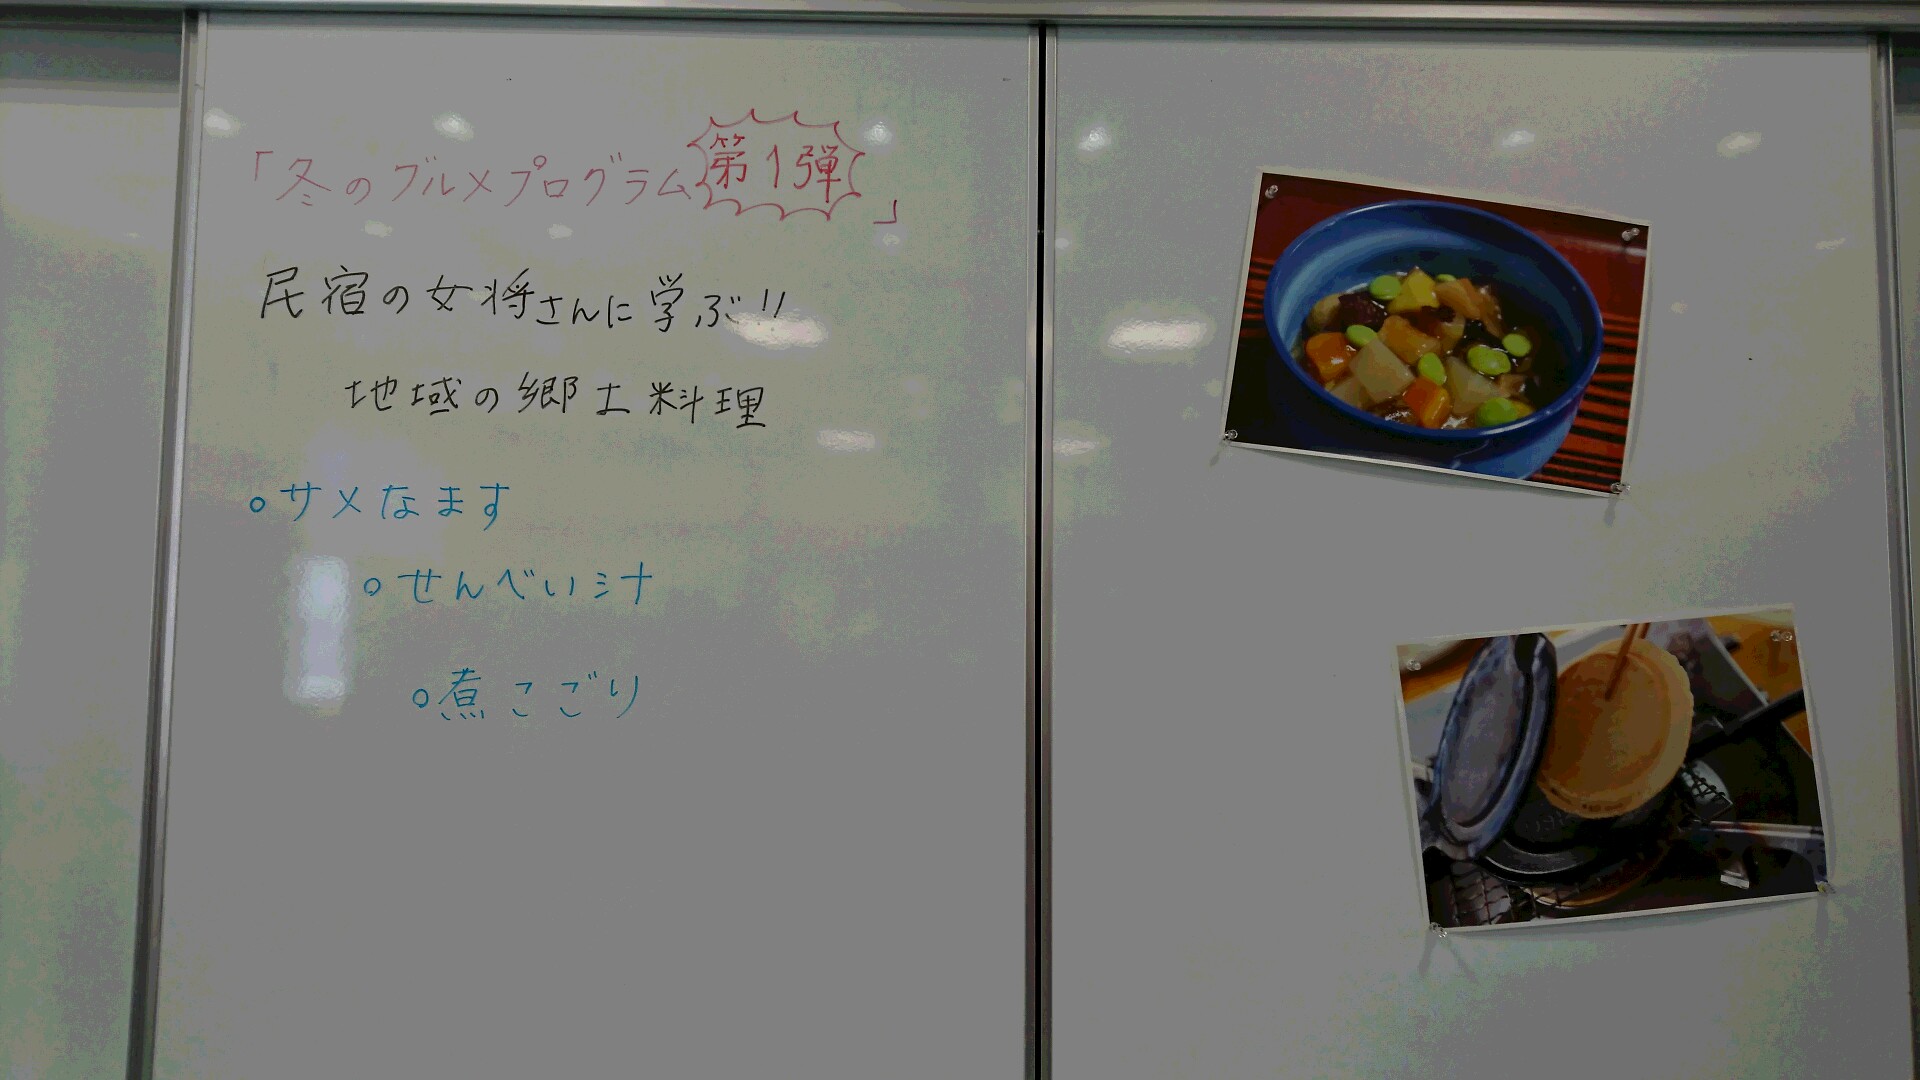 「冬のグルメプログラム第1弾」
民宿の女将さんに学ぶ!!
地域の郷土料理
○サメなます
○せんべい汁
○煮こごり